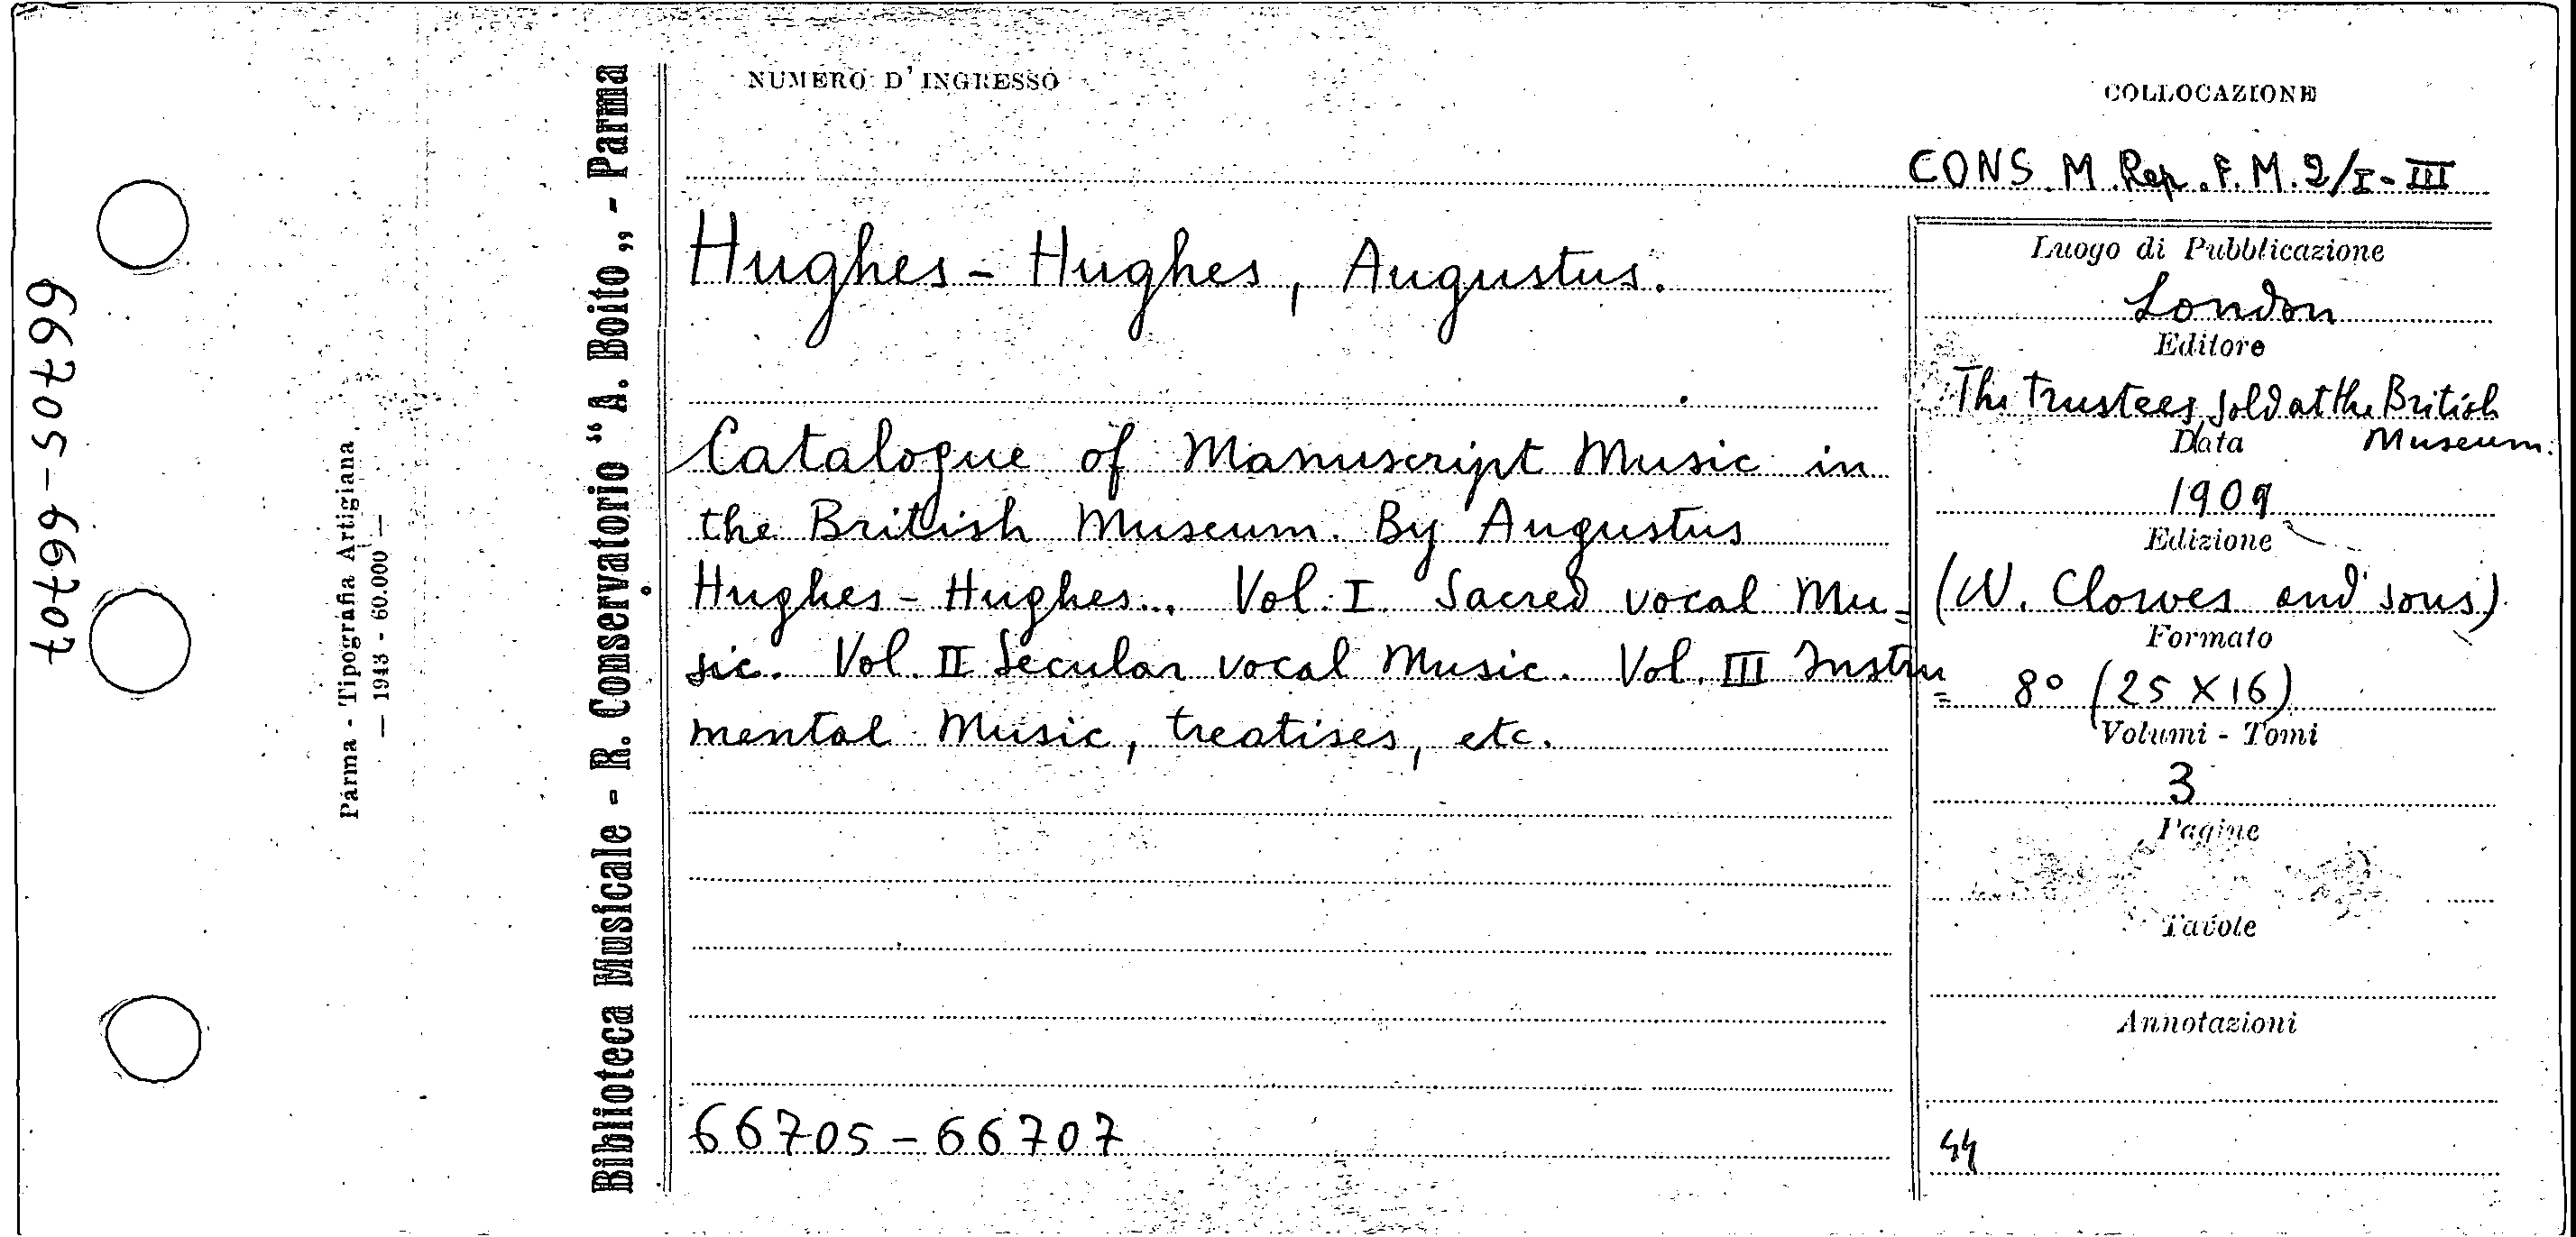 66705-66707
Parma - Tipografia Artigiana
— 1943 - 60.000 —
Biblioteca Musicale - R. Conservatorio “A. Boito„ - Parma
NUMERO D'INGRESSO
COLLOCAZIONE
CONS. M. Rep. F. M. 2/I-III
Hughes-Hughes, Augustus.
Catalogue of Manuscript Music in
the British Museum. By Augustus
Hughes-Hughes... Vol. I Sacred vocal Mu=
sic. Vol. II Secular vocal Music. Vol. III Instru=
mental Music, treatises, etc.
66705-66707
Luogo di Pubblicazione
London
Editore
The Trustees, sold at the British
Museum.
Data
1909
Edizione
(W. Clowes and sons)
Formato
8° (25 X 16)
Volumi - Tomi
3
Pagine
Tavole
Annotazioni